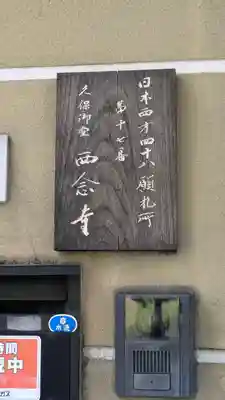 日本西方四十八願札所
第十七番
久保御堂
西念寺
水道
時間
中
ガス